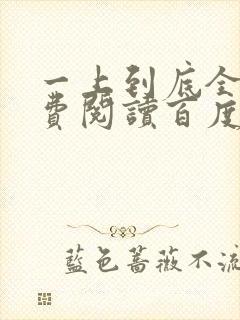 一上到底全
費閱讀百度
藍色薔薇不流